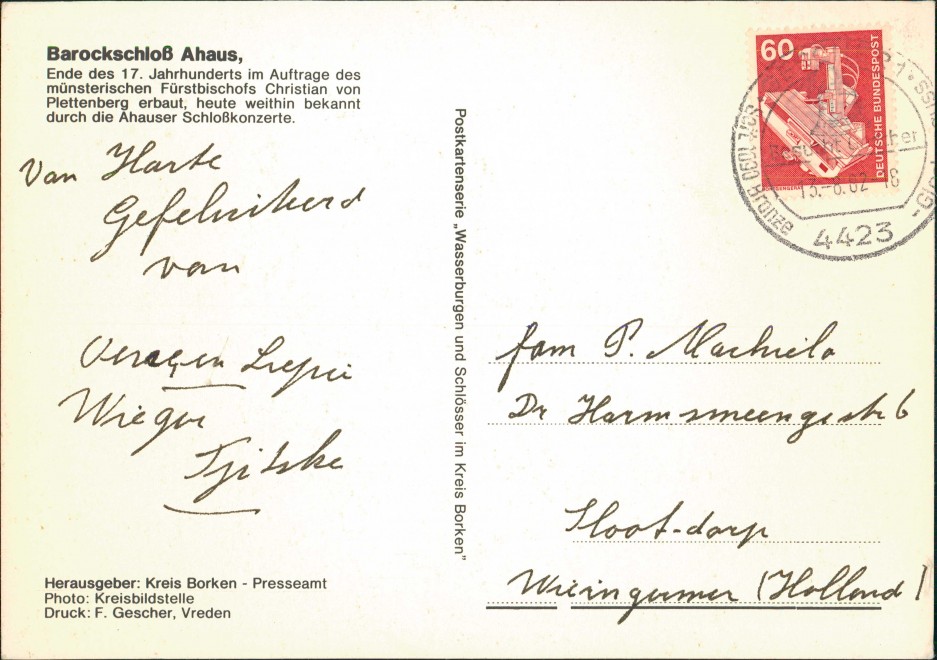 Barockschloß Ahaus,
Ende des 17. Jahrhunderts im Auftrage des
münsterischen Fürstbischofs Christian von
Plettenberg erbaut, heute weithin bekannt
durch die Ahauser Schloßkonzerte.
Van Harte
Gefelsiteerd
van
Wieger
Tjitske
Herausgeber: Kreis Borken - Presseamt
Photo: Kreisbildstelle
Druck: F. Gescher, Vreden
Postkartenserie „Wasserburgen und Schlösser im Kreis Borken"
60
DEUTSCHE BUNDESPOST
Bronze
13.-8.82-18
4423
fam P. Machiela
Dr Harmsmeengstr 6
Sloot-dorp
Wieringermer (Holland)